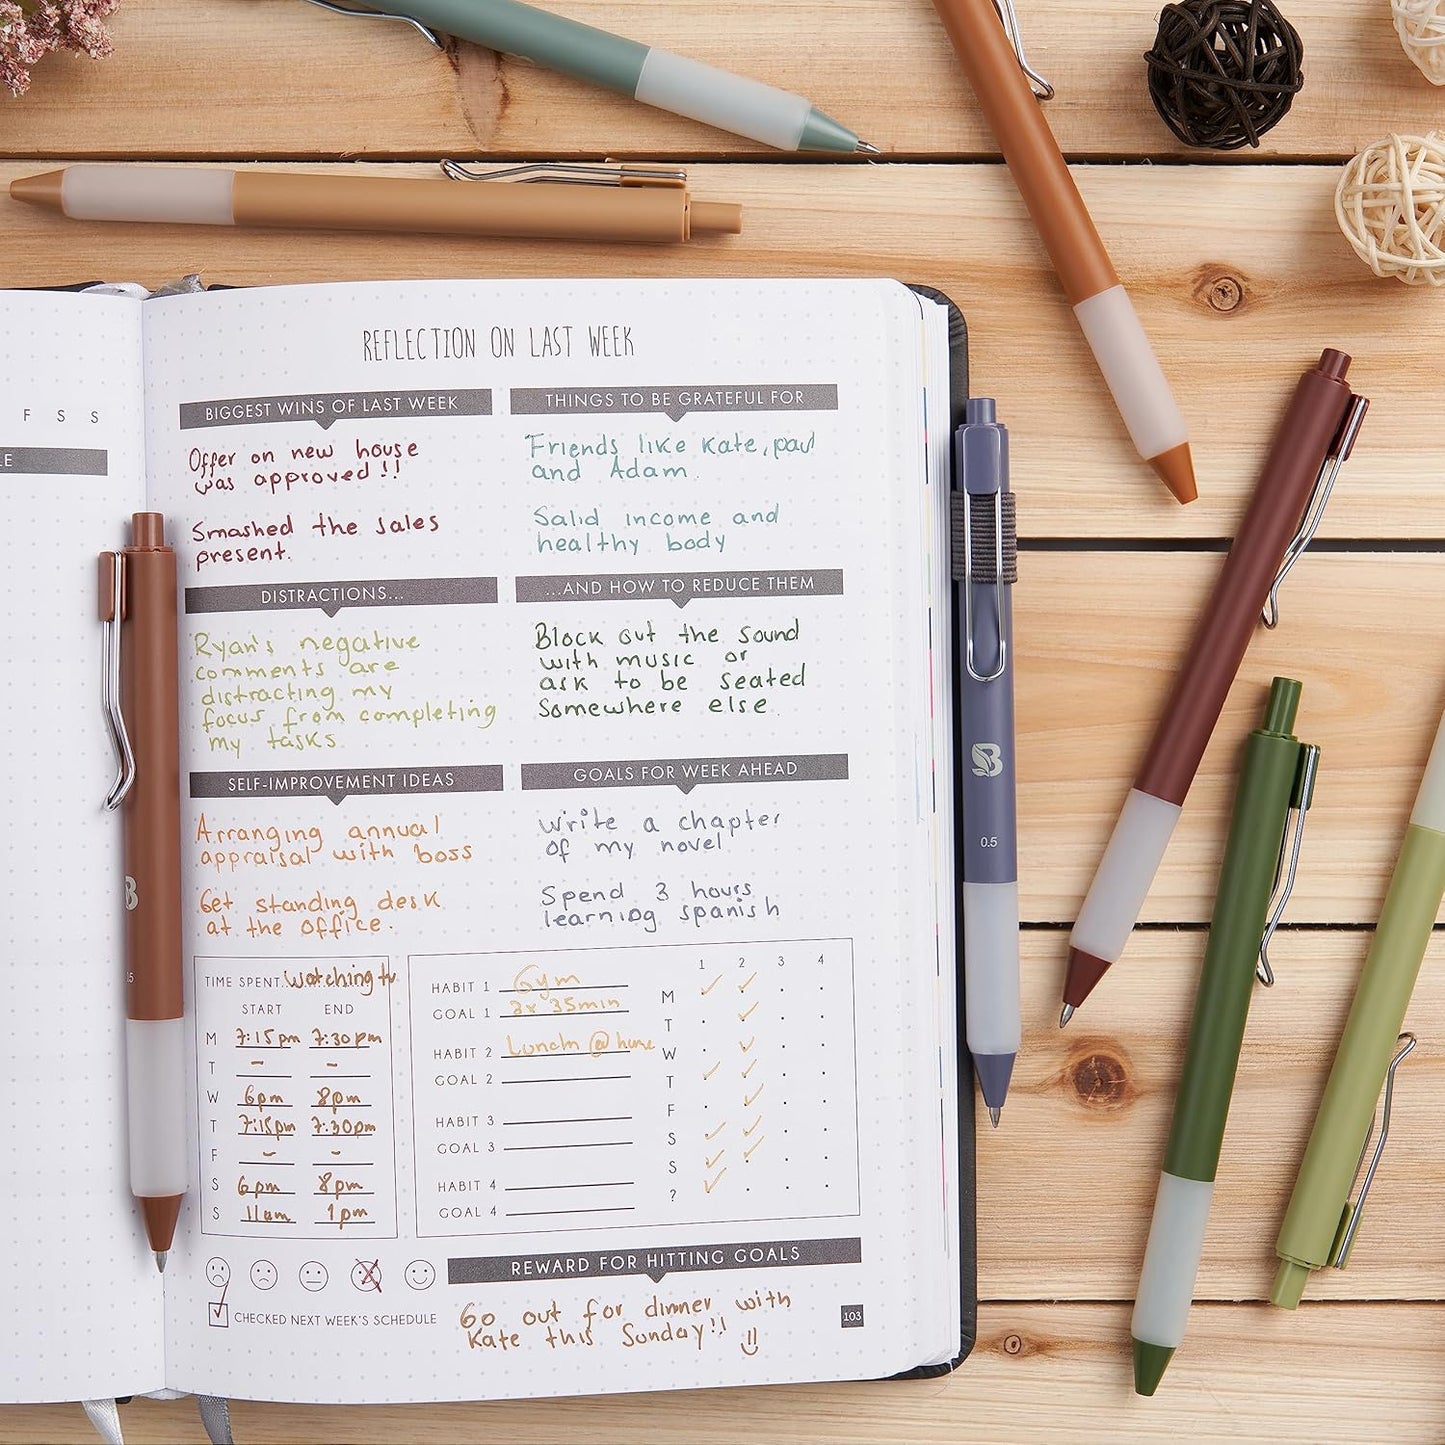 F S S
LE
REFLECTION ON LAST WEEK
BIGGEST WINS OF LAST WEEK
Offer on new house
was approved!!
Smashed the sales
present.
THINGS TO BE GRATEFUL FOR
Friends like Kate, paul
and Adam.
Salid income and
healthy body
DISTRACTIONS...
Ryan's negative
comments are
distracting my
focus from completing
my tasks
...AND HOW TO REDUCE THEM
Block out the sound
with music or
ask to be seated
Somewhere else.
SELF-IMPROVEMENT IDEAS
Arranging annual
appraisal with boss
Get standing desk
at the office.
GOALS FOR WEEK AHEAD
Write a chapter
of my novel
Spend 3 hours
learning spanish
TIME SPENT watching tv
START END
M 7:15pm 7:30pm
T - -
W 6pm 8pm
T 7:15pm 7:30pm
F - -
S 6pm 8pm
S 11am 1pm
HABIT 1 Gym
GOAL 1 3x 35min
HABIT 2 Lunch @ home
GOAL 2
HABIT 3
GOAL 3
HABIT 4
GOAL 4
1 2 3 4
M
T
W
T
F
S
S
?
CHECKED NEXT WEEK'S SCHEDULE
REWARD FOR HITTING GOALS
Go out for dinner with
Kate this Sunday!!
103
B
0.5
B